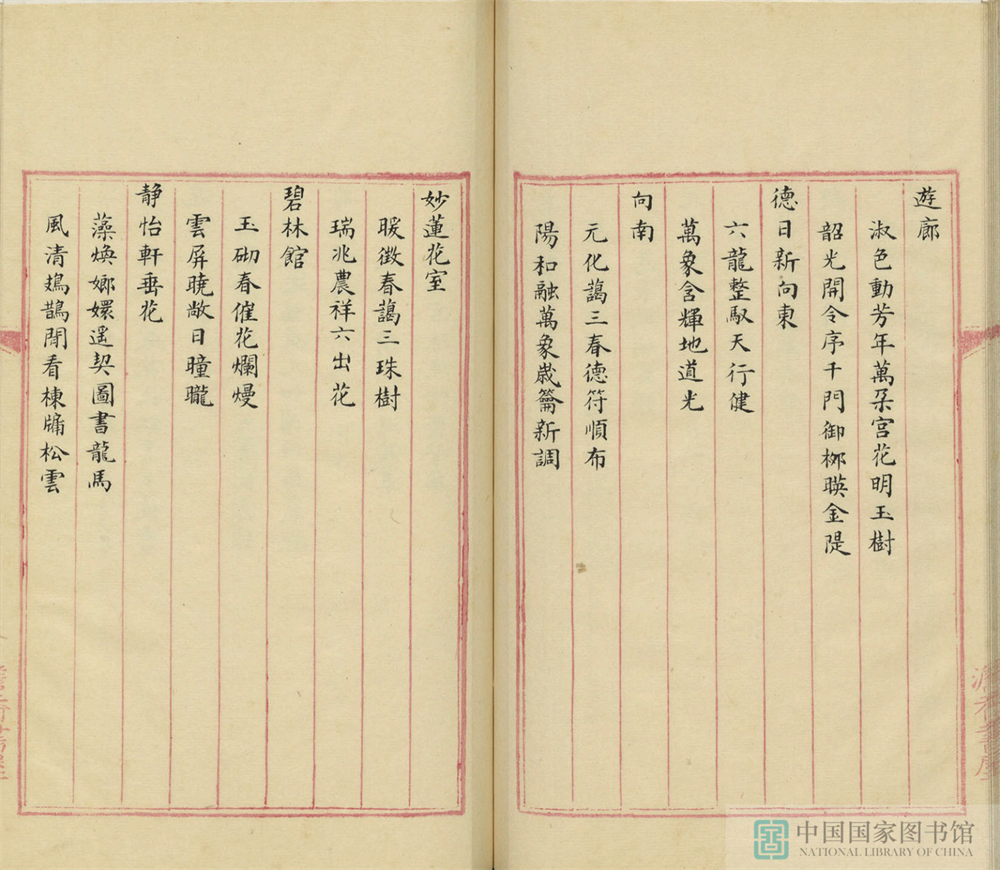 遊廊
淑色動芳年萬朶宫花明玉樹
韶光開令序千門御栁暎金隄
德日新向東
六龍整馭天行健
萬象含輝地道光
向南
元化藹三春德符順布
陽和融萬象歲籥新調
妙蓮花室
暖徵春藹三珠樹
瑞兆農祥六出花
碧林館
玉砌春催花爛熳
雲屏曉敞日曈曨
静怡軒垂花
藻煥嫏嬛遙契圖書龍馬
風清鳷鵲閒看棟牖松雲
中国国家图书馆
NATIONAL LIBRARY OF CHINA